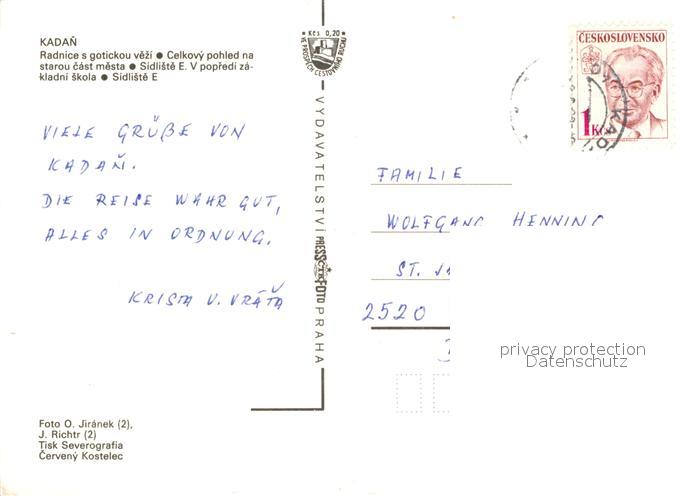 KADAŇ
Radnice s gotickou věží ● Celkový pohled na
starou část města ● Sídliště E. V popředí zá-
kladní škola ● Sídliště E
Kčs 0,20
VE PROSPĚCH CESTOVNÍHO RUCHU
ČESKOSLOVENSKO
1 Kčs
VIELE GRÜßE VON
KADAŇ.
DIE REISE WAHR GUT,
ALLES IN ORDNUNG.
KRISTA U. VRÁŤA
VYDAVATELSTVÍ PRESSFOTO PRAHA
FAMILIE
WOLFGANG HENNING
ST.
2520
privacy protection
Datenschutz
Foto O. Jiránek (2),
J. Richtr (2)
Tisk Severografia
Červený Kostelec